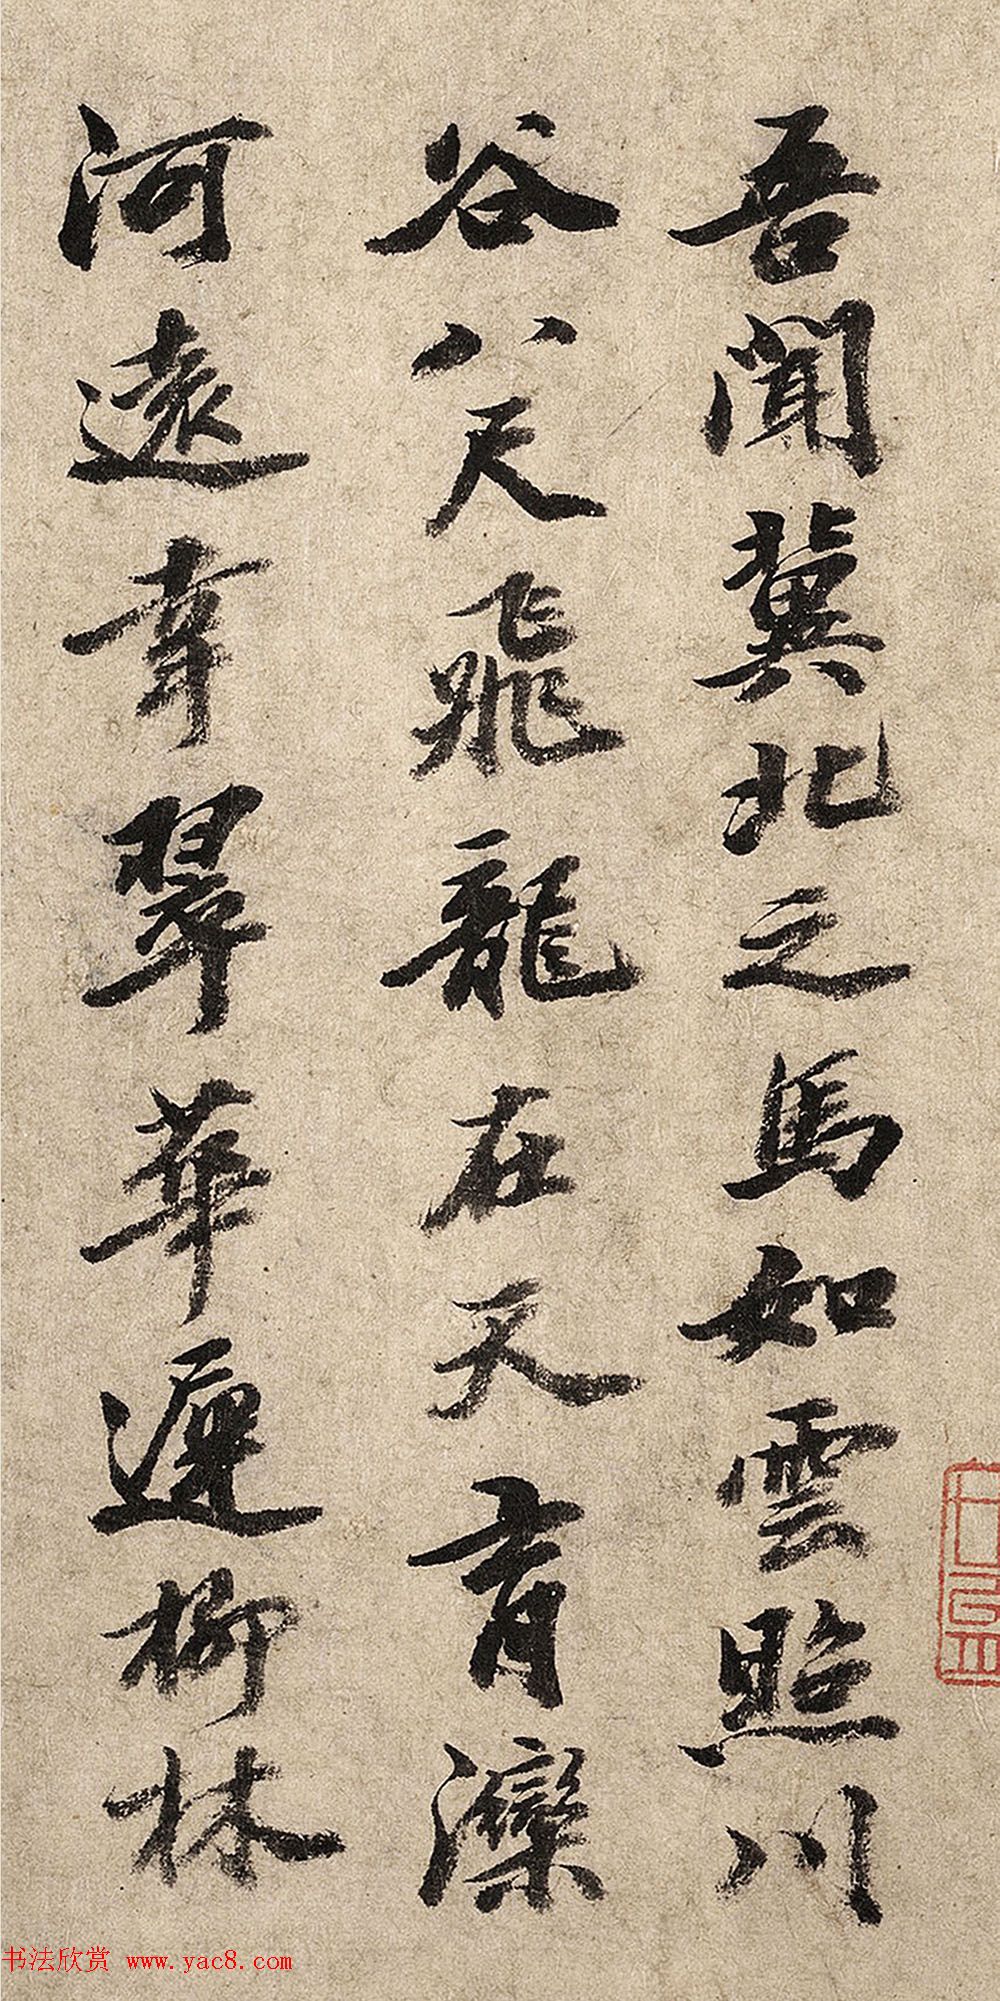 吾聞冀北之馬如雲照川
谷八尺飛龍在天育灤
河遠幸翠華還柳林
书法欣赏 www.yac8.com